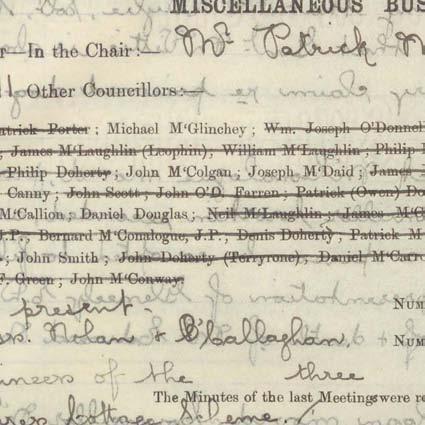 MISCELLANEOUS BUS
r—In the Chair:— Mr. Patrick M
Other Councillors:—
atrick Porter; Michael M'Glinchey; Wm. Joseph O'Donnell
, James M'Laughlin (Leophin), William M'Laughlin; Philip
Philip Doherty; John M'Colgan; Joseph M'Daid; James
Canny; John Scott; John O'D. Farren; Patrick (Owen) Do
M'Callion; Daniel Douglas; Neil M'Laughlin; James M'G
J.P., Bernard M'Conalogue, J.P., Denis Doherty, Patrick M
; John Smith; John Doherty (Terryrone), Daniel M'Carro
F. Green; John M'Conway.
present.
Num
rs. Nolan & O'Callaghan,
Num
ineers of the three
The Minutes of the last Meetings were r
Cottage Scheme.